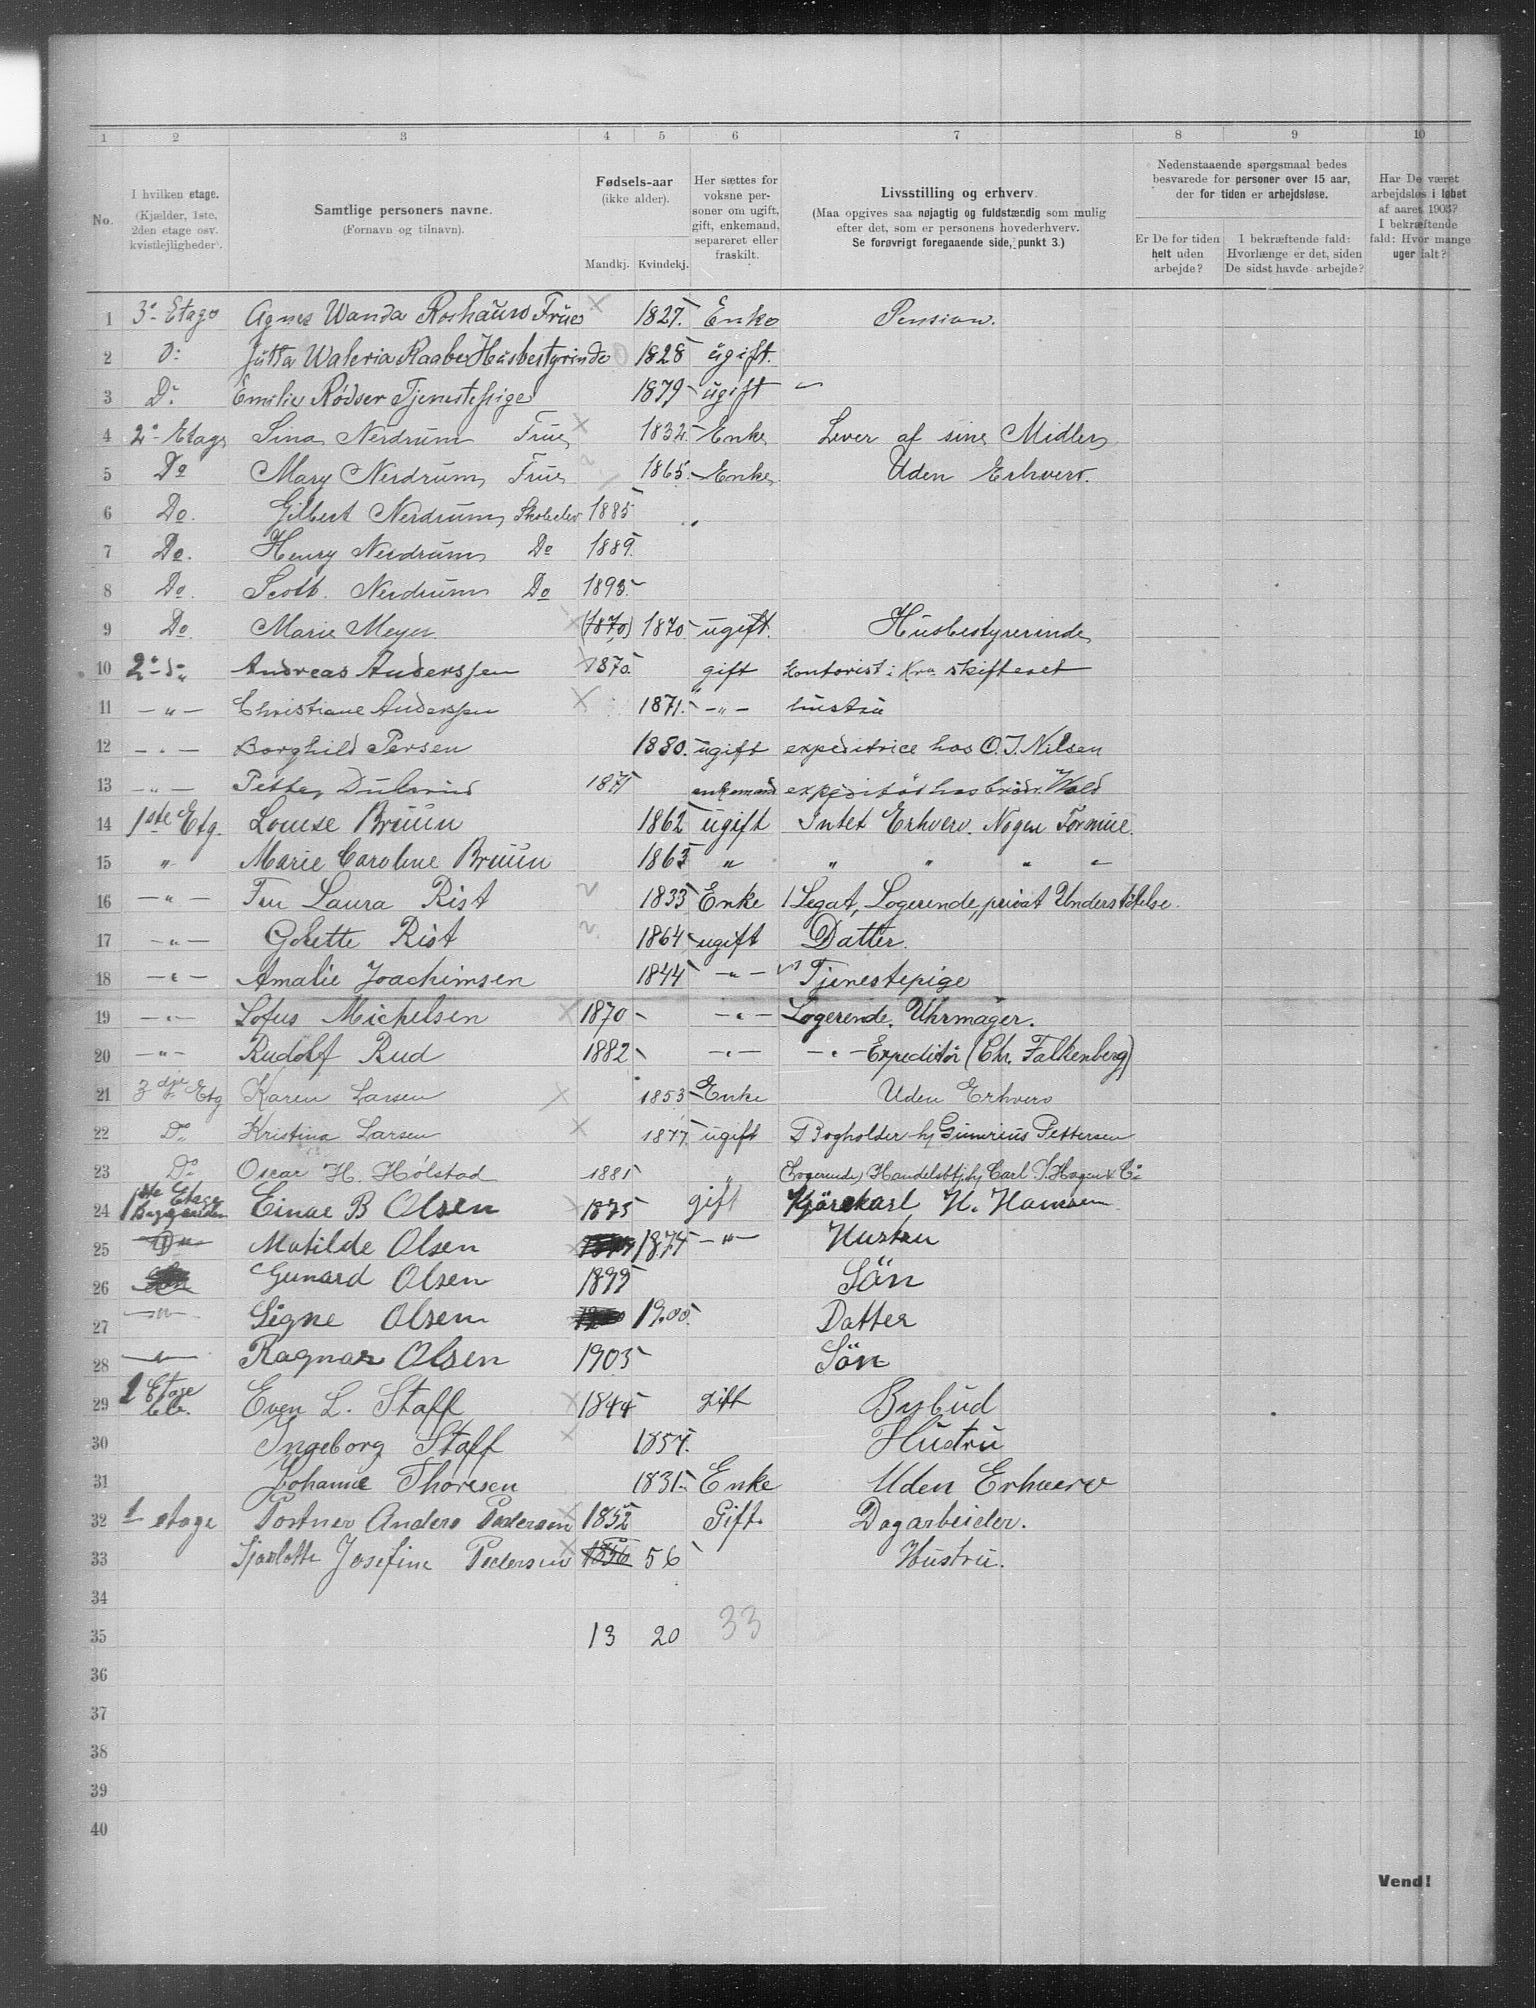 1 2 3 4 5 6 7 8 9 10
No.
I hvilken etage.
(Kjælder, 1ste,
2den etage osv.
kvistlejligheder).
Samtlige personers navne.
(Fornavn og tilnavn).
Fødsels-aar
(ikke alder).
Mandkj. Kvindekj.
Her sættes for
voksne per-
soner om ugift,
gift, enkemand,
separeret eller
fraskilt.
Livsstilling og erhverv.
(Maa opgives saa nøjagtig og fuldstændig som mulig
efter det, som er personens hovederhverv.
Se forøvrigt foregaaende side, punkt 3.)
Nedenstaaende spørgsmaal bedes
besvarede for personer over 15 aar,
der for tiden er arbejdsløse.
Er De for tiden
helt uden
arbejde?
I bekræftende fald:
Hvorlænge er det, siden
De sidst havde arbejde?
Har De været
arbejdsløs i løbet
af aaret 1903?
I bekræftende
fald: Hvor mange
uger ialt?
1 3º Etage Agnes Wanda Roshauw Frue 1827. Enke Pension.
2 Dº Jutta Waleria Raabe Husbestyrinde 1828 ugift.
3 Dº Emilie Rødser Tjenestepige 1879 ugift "
4 2º Etage Sina Nerdrum Frue 1832. Enke Lever af sine Midler
5 Do Mary Nerdrum Frue 1865. Enke Uden Erhverv.
6 Do. Gilbert Nerdrum Skoleelev 1885
7 Do. Henry Nerdrum Do 1889.
8 Do. Scott. Nerdrum Do 1893
9 Do Marie Meyer (1870) 1870 ugift. Husbestyrerinde
10 2º do Andreas Anderssen 1870. gift kontorist i Kra. skifteret
11 — " — Christiane Anderssen 1871. — " — hustru
12 — " — Borghild Persen 1880. ugift expeditrice hos O. J. Nilsen
13 — " — Petter 1871 enkemand expeditør hos brødr. Wold
14 1ste Etg. Louise Bruun 1862 ugift Intet Erhverv. Nogen Formue.
15 " Marie Caroline Bruun 1863 " " " " "
16 — " — Fru Laura Rist 1833 Enke 1 Legat, Logerende, privat Understøttelse.
17 — " — Golette Rist 1864 ugift Datter.
18 — " — Amalie Joachimsen 1844 — " — Tjenestepige
19 — " — Lofus Michelsen 1870 — " — Logerende. Uhrmager.
20 — " — Rudolf Rud 1882 — " — — " — Expeditør (Chr. Falkenberg)
21 3dje Etg Karen Larsen 1853 Enke Uden Erhverv
22 Do Kristina Larsen 1877. ugift Bogholder hj Gunerius Pettersen
23 Do Oscar H. Hølstad 1881 " (Logerende) Handelsbtj. hj. Carl S. Hagen & Co
24 1ste Etage Baggaarden Einar B Olsen 1875 gift Kjørekarl H. Hansen
25 Do Matilde Olsen 1874 — " — Hustru
26 Gunard Olsen 1899 Søn
27 — " — Signe Olsen 1900. Datter
28 — " — Ragnar Olsen 1903 Søn
29 1 Etage Even L. Staff 1844 gift Bybud
30 Ingeborg Staff 1857. Hustru
31 Johanne Thoresen 1831. Enke Uden Erhverv
32 1 etage Portner Anders Pedersen 1852 Gift. Dagarbeider.
33 Sjarlotte Josefine Pedersen 1856 56 Hustru.
34
35 13 20 33
36
37
38
39
40
Vend!